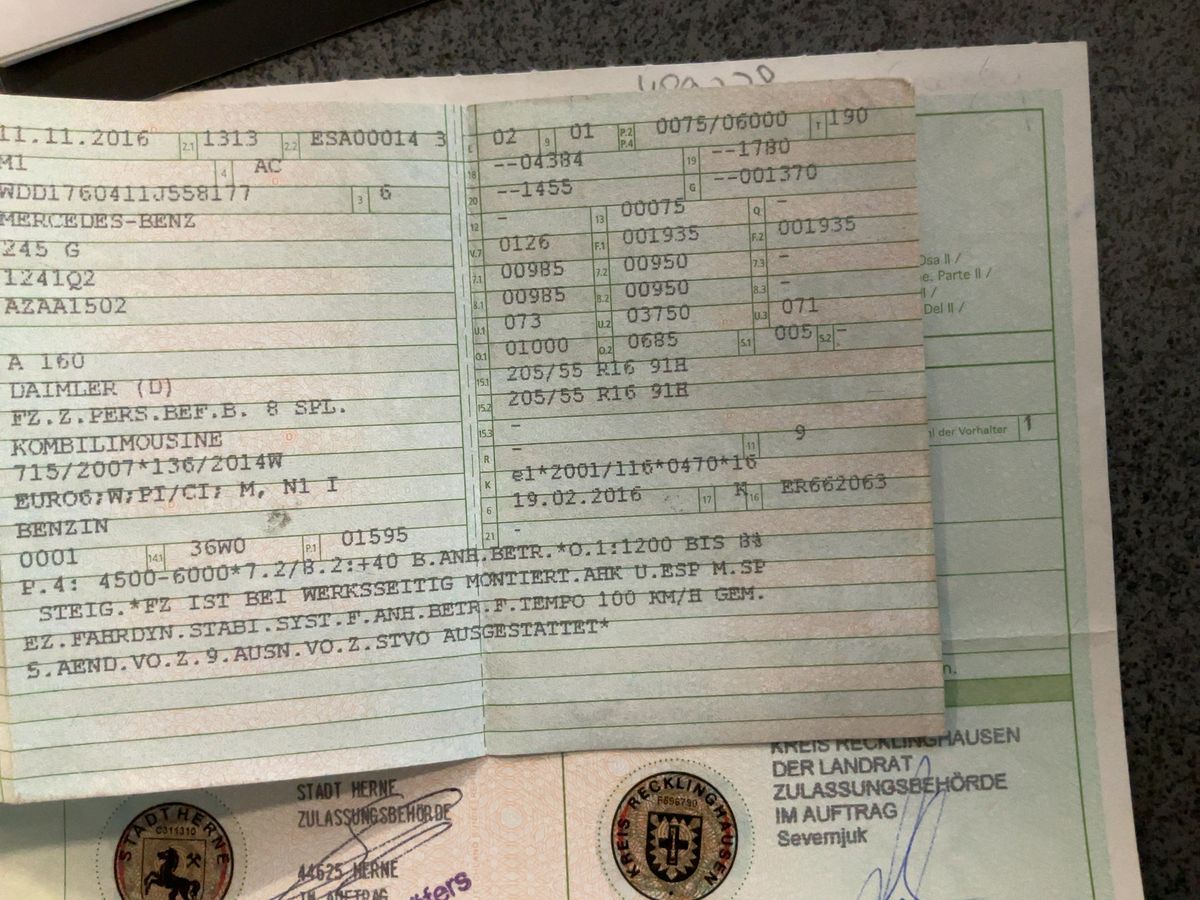 11.11.2016 2.1 1313 2.2 ESA00014 3
M1 4 AC
WDD1760411J558177 3 6
MERCEDES-BENZ
245 G
1241Q2
AZAA1502
A 160
DAIMLER (D)
FZ.Z.PERS.BEF.B. 8 SPL.
KOMBILIMOUSINE
715/2007*136/2014W
EURO6;W;PI/CI; M, N1 I
BENZIN
0001 14.1 36W0 P.1 01595
02 9 01 P.2 P.4 0075/06000 T 190
18 --04384 19 --1780
20 --1455 G --001370
12 - 13 00075 Q -
V.7 0126 F.1 001935 F.2 001935
7.1 00985 7.2 00950 7.3 -
8.1 00985 8.2 00950 8.3 -
U.1 073 U.2 03750 U.3 071
O.1 01000 O.2 0685 S.1 005 S.2 -
15.1 205/55 R16 91H
15.2 205/55 R16 91H
15.3 -
R - 11 9
K e1*2001/116*0470*16
6 19.02.2016 17 K 16 ER662063
21 -
P.4: 4500-6000*7.2/8.2:+40 B.ANH.BETR.*O.1:1200 BIS 8%
STEIG.*FZ IST BEI WERKSSEITIG MONTIERT.AHK U.ESP M.SP
EZ.FAHRDYN.STABI.SYST.F.ANH.BETR.F.TEMPO 100 KM/H GEM.
5.AEND.VO.Z.9.AUSN.VO.Z.STVO AUSGESTATTET*
Parte II /
Del II /
der Vorhalter 1
STADT HERNE
C311310
STADT HERNE
ZULASSUNGSBEHÖRDE
44625 HERNE
IM AUFTRAG
KREIS RECKLINGHAUSEN
F596790
KREIS RECKLINGHAUSEN
DER LANDRAT
ZULASSUNGSBEHÖRDE
IM AUFTRAG
Severnjuk